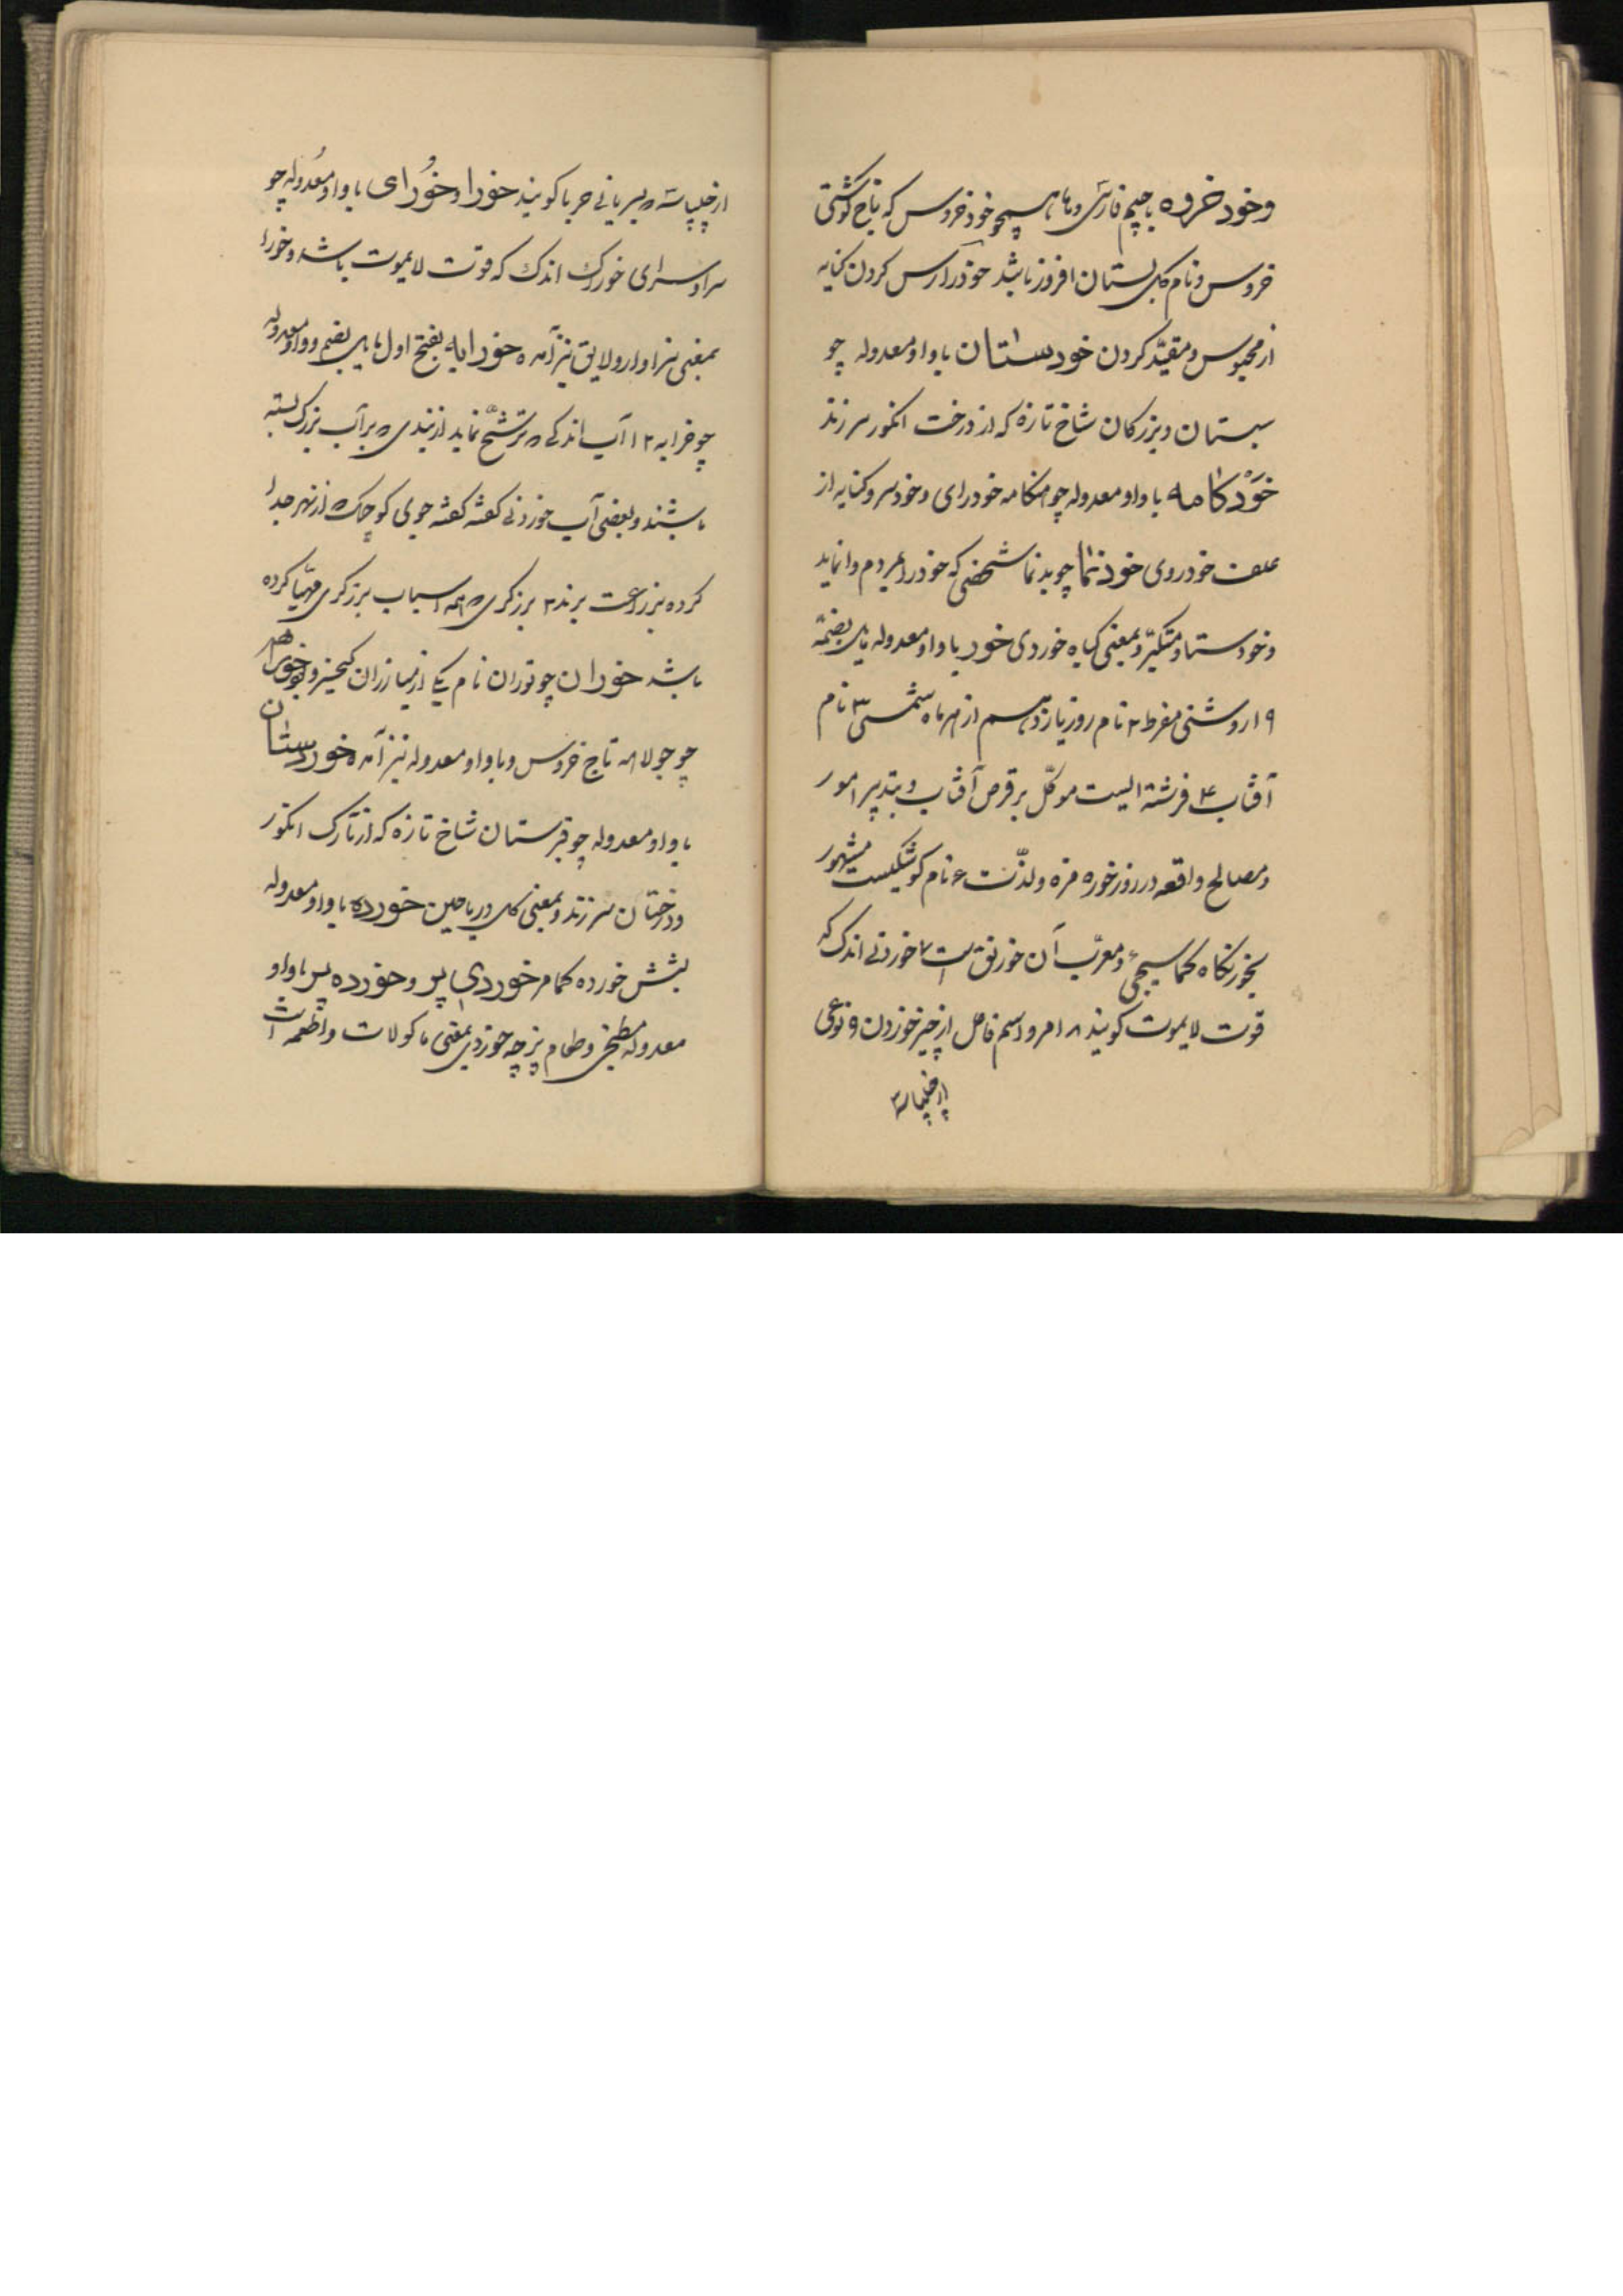 وخود خروه باجیم فارسی وها همچو خود خروس که تاج گوشتی
خروس ونام گل بستان افروز باشد خود را رس کردن کنایه
از محبوس ومقید کردن خودستان باواو معدوله چو
سبستان وبزرکان شاخ تازه که از درخت انکور سر زند
خودکامه باواو معدوله چو هنکامه خودرای وخودسر وکنایه از
علف خودروی خودنما چو بدنما شخصی که خود را بمردم وانماید
وخودستا ومتکبر وبمعنی کیاه خوردی خور باواو معدوله بضمه
۱۹ روشنی مفرط ۲ نام روز یازدهم از هر ماه شمسی ۳ نام
آفتاب ۴ فرشته ایست موکل بر قرص آفتاب وتدبیر امور
ومصالح واقعه در روز خور ۵ مزه ولذت ۶ نام کوشکیست مشهور
بخورنکاه کماسیجیء ومعرب آن خورنق است ۷ خوردنی اندک که
قوت لایموت کویند ۸ امر واسم فاعل از چیز خوردن ۹ نوعی
از چلپاسه
از چلپاسه بسریانی حربا کویند خورا وخورای باواو معدوله چو
سرا وسرای خوراک اندک که قوت لایموت باشد وخورا
بمعنی سزاوار ولایق نیز آمده خورابه بفتح اول بضم وواو معدوله
چو خرابه ۱۲ آب اندکی ترشح نماید از بندی بر آب بزرک بسته
باشند وبعضی آب خوردنی کفته کفته جوی کوچک از نهر جدا
کرده بزراعت برند ۳ برزکری همه اسباب برزکری مهیا کرده
باشد خوران چو توران نام یکی از مبارزان کیخسرو بود خوراهه
چو جولاهه تاج خروس وباواو معدوله نیز آمده خورستان
باواو معدوله چو قبرستان شاخ تازه که از تاک انکور
ودرختان سر زند وبمعنی کل وریاحین خورده باواو معدوله
بشش خورده کمامر خوردی پز وخورده پز باواو
معدوله مطبخی وطعام پز چه خوردی بمعنی ماکولات واطعمه است